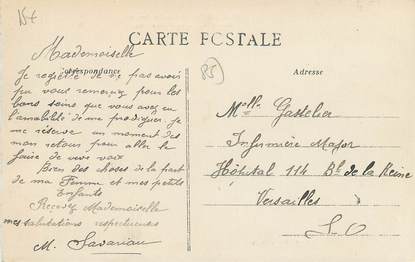 15€
CARTE POSTALE
Correspondance
Adresse
85
Mademoiselle
Je regrette de ne pas avoir
pu vous remercier pour les
bons soins que vous avez eu
l'amabilité de me prodiguer. Je
me réserve au moment de
mon retour pour aller le
faire de vive voix
Bien des choses de la part
de ma Femme et mes petits
Enfants
Recevez Mademoiselle
mes salutations respectueuses
M. Savariau
Melle Gastelier
Infirmière Major
Hôpital 114 Bd de la Reine
Versailles
S.O